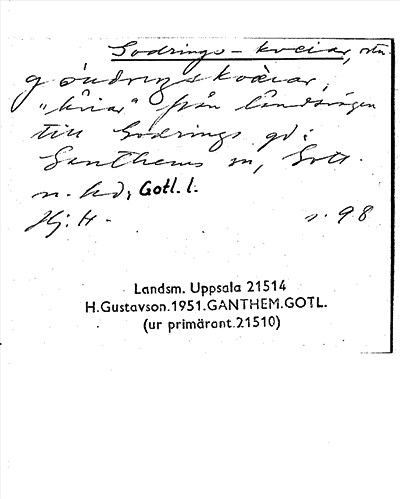 Godrings-kveiar,
"kviar" från landsvägen
till Godrings gd i
Ganthems sn, Gotl.
n. hd, Gotl. l.
Hj: H. s. 98
Landsm. Uppsala 21514
H.Gustavson.1951.GANTHEM.GOTL.
(ur primärant.21510)